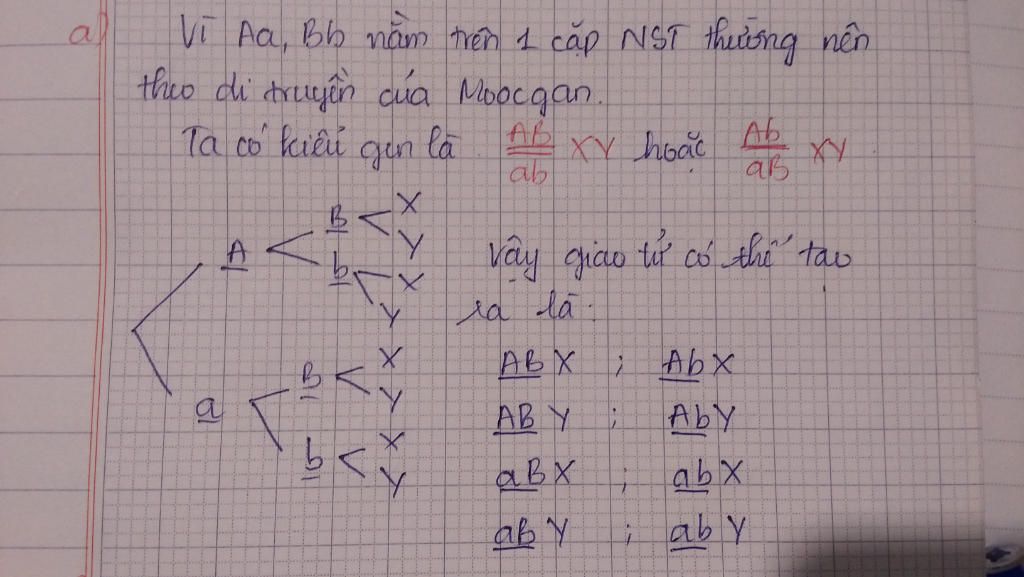 a) Vì Aa, Bb nằm trên 1 cặp NST thường nên
theo di truyền của Moocgan.
Ta có kiểu gen là AB/ab XY hoặc Ab/aB XY
A B X
Y
b X
Y
a B X
Y
b X
Y
Vậy giao tử có thể tạo
ra là:
AB X ; Ab X
AB Y ; Ab Y
aB X ; ab X
aB Y ; ab Y